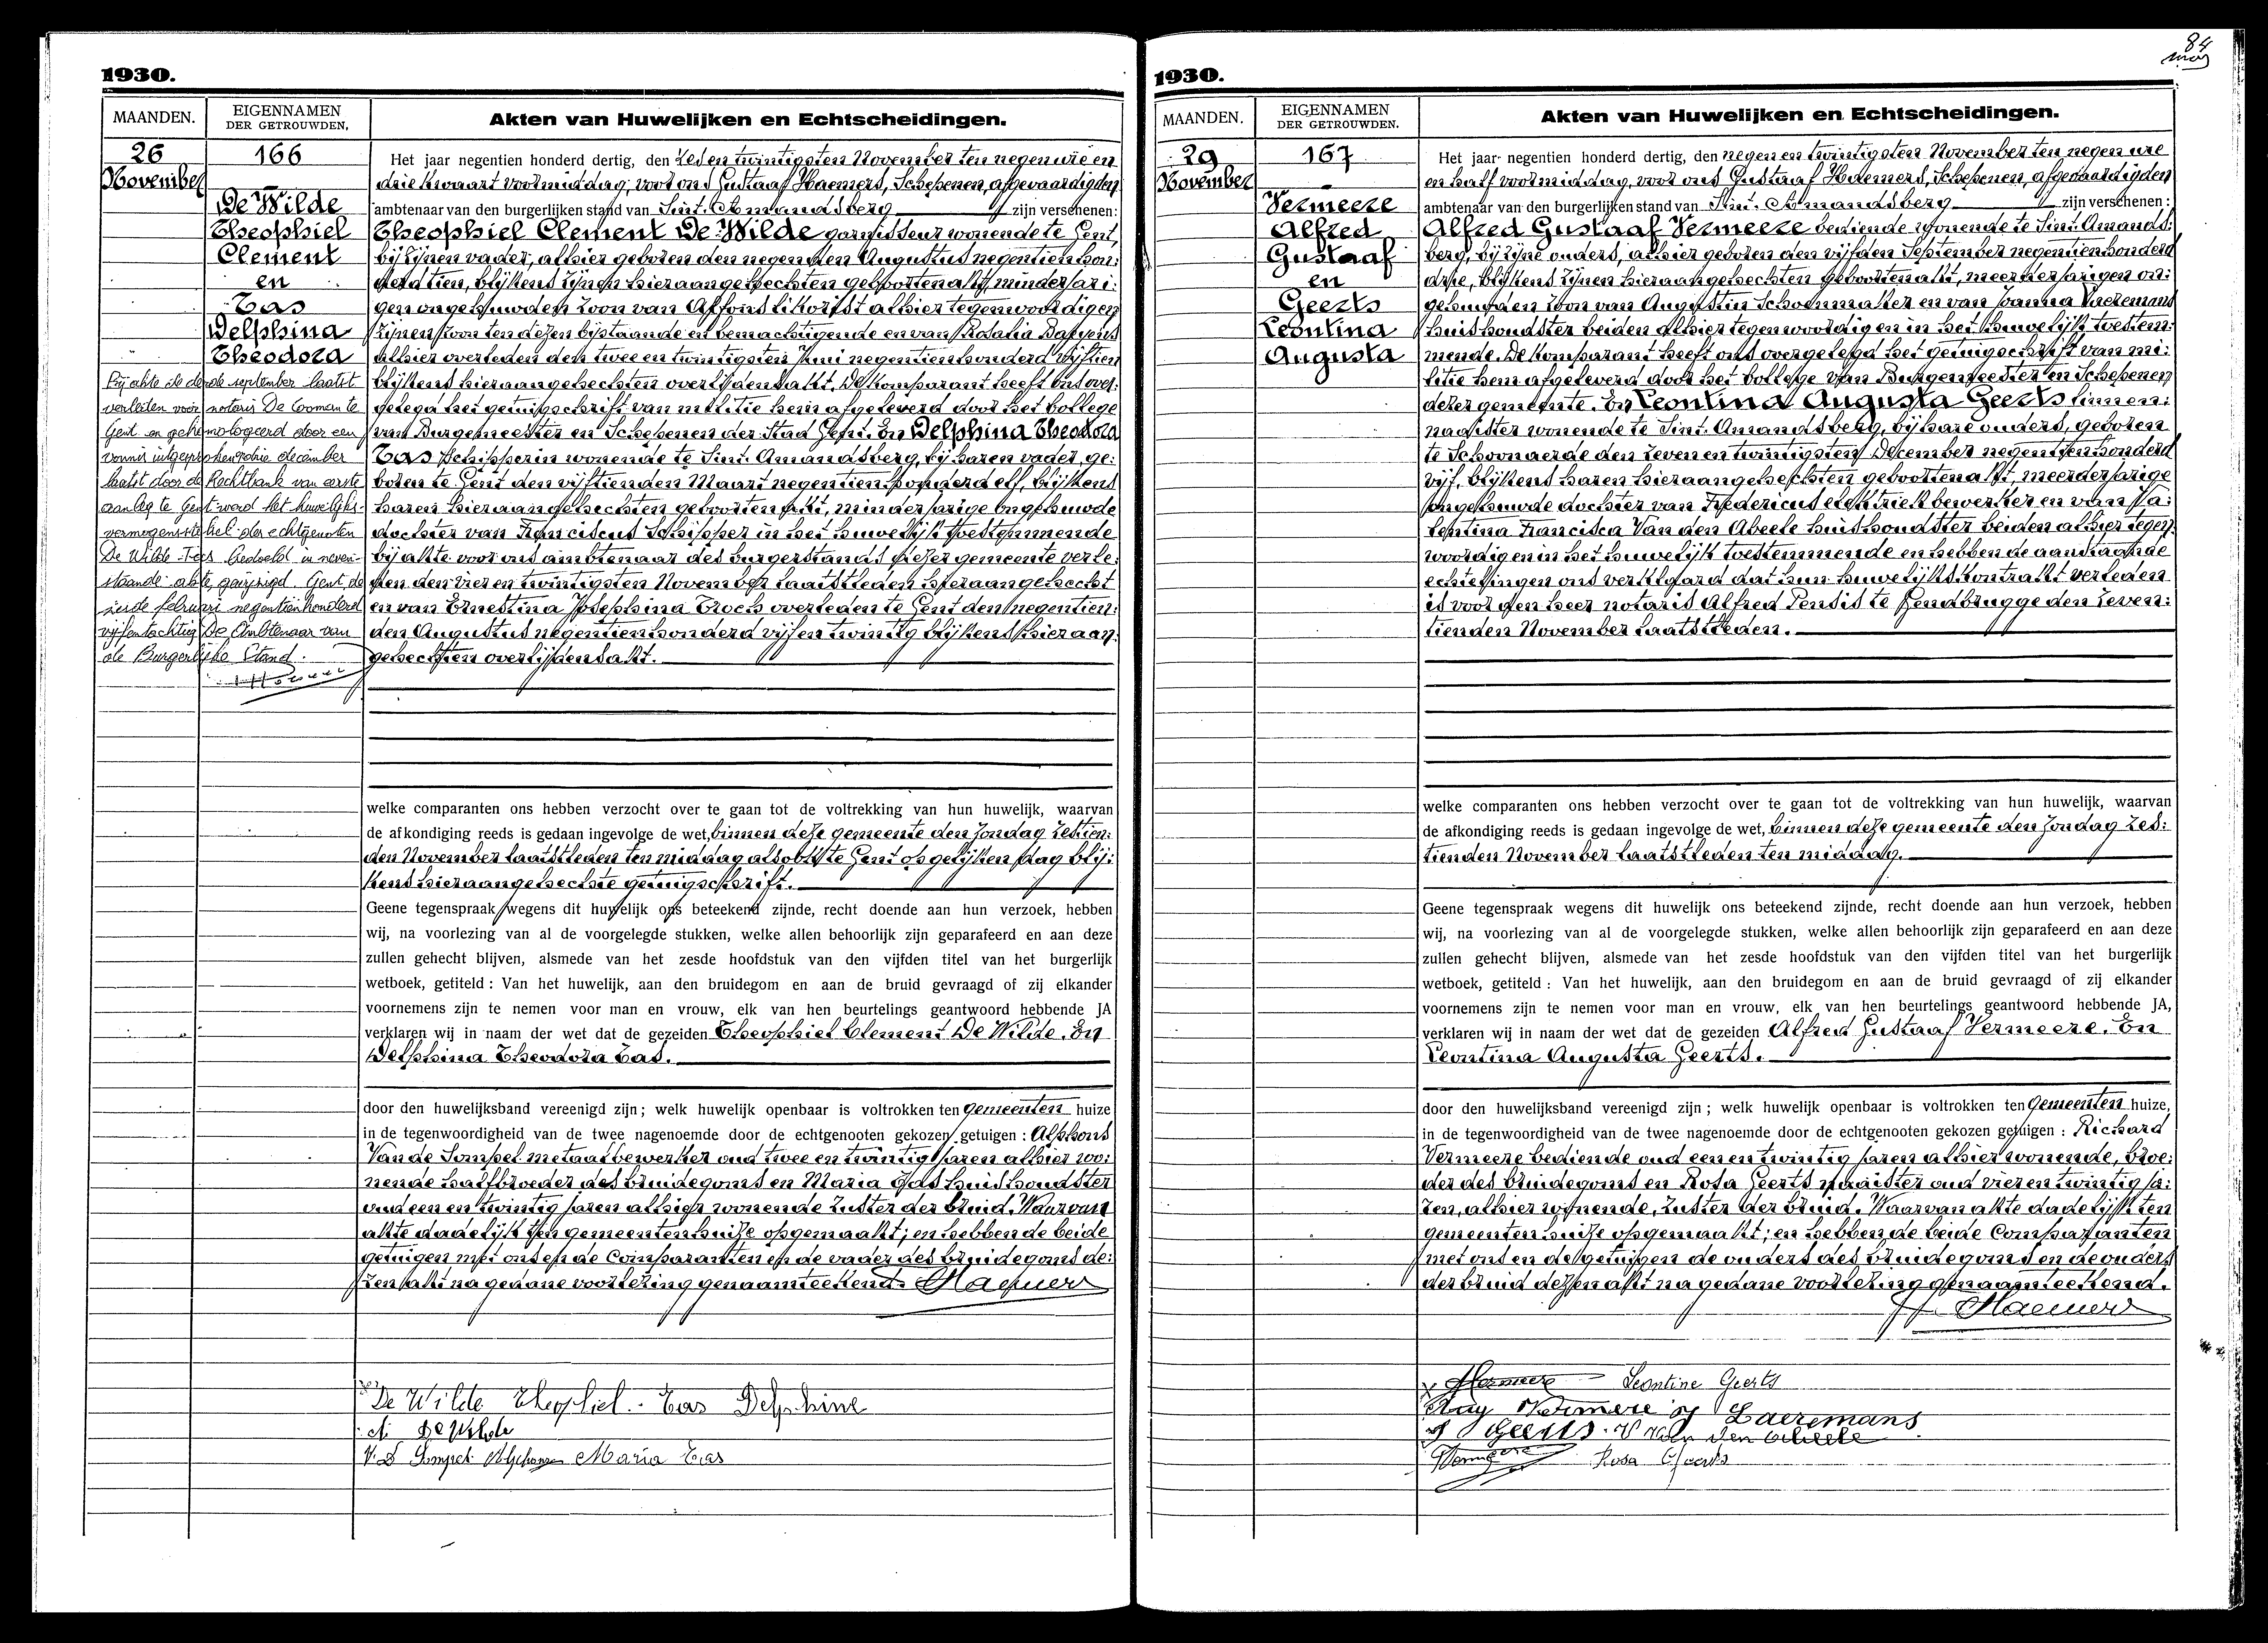 1930.
MAANDEN.
EIGENNAMEN
DER GETROUWDEN.
Akten van Huwelijken en Echtscheidingen.
26
November
166
De Wilde
Theophiel
Clement
en
Tas
Delphina
Theodora
Bij akte de derde september laatst
verleden voor notaris De Cooman te
Gent en gehomologeerd door een
vonnis uitgesproken drie december
laatst door de Rechtbank van eerste
aanleg te Gent werd het huwelijks-
vermogenstelsel der echtgenoten
De Wilde-Tas bedoeld in neven-
staande akte gewijzigd. Gent, de
vierde februari negentienhonderd
vijfentachtig De Ambtenaar van
de Burgerlijke Stand.
Het jaar negentien honderd dertig, den zes en twintigsten November ten negen ure en
drie kwaart voormiddag, voor ons Gustaaf Haemers, Schepenen, afgevaardigden
ambtenaar van den burgerlijken stand van Sint. Amandsberg zijn verschenen:
Theophiel Clement De Wilde garnisseur wonende te Gent,
bij zijnen vader, alhier geboren den negensten Augustus negentien hon:
derd tien, blijkens zijnen hieraangehechten geboortenakt, minderjari:
gen ongehuwden zoon van Alfons likorist alhier tegenwoordigen
zijnen zoon ten dezen bijstaande en bemachtigende en van Rosalia Bauwens
alhier overleden den twee en twintigsten Juni negentienhonderd vijftien
blijkens hieraangehechten overlijdensakt. De komparant heeft ons over:
gelegd het getuigschrift van militie hem afgeleverd door het College
van Burgemeester en Schepenen der Stad Gent. En Delphina Theodora
Tas Schipperin wonende te Sint. Amandsberg, bij haren vader, ge:
boren te Gent den vijftienden Maart negentien honderd elf, blijkens
haren hieraangehechten geboortenakt, minderjarige ongehuwde
dochter van Franciscus Schipper in het huwelijk toestemmende
bij akte voor ons ambtenaar des burgerstands dezer gemeente verle:
den den vier en twintigsten November laatstleden hieraangehecht
en van Ernestina Josephina Troch overleden te Gent den negentien:
den Augustus negentienhonderd vijf en twintig blijkens hieraan:
gehechten overlijdensakt.
welke comparanten ons hebben verzocht over te gaan tot de voltrekking van hun huwelijk, waarvan
de afkondiging reeds is gedaan ingevolge de wet, binnen deze gemeente den Zondag zestien:
den November laatstleden ten middag alsook te Gent op gelijken dag blij:
kens hieraangehechte getuigschrift.
Geene tegenspraak wegens dit huwelijk ons beteekend zijnde, recht doende aan hun verzoek, hebben
wij, na voorlezing van al de voorgelegde stukken, welke allen behoorlijk zijn geparafeerd en aan deze
zullen gehecht blijven, alsmede van het zesde hoofdstuk van den vijfden titel van het burgerlijk
wetboek, getiteld : Van het huwelijk, aan den bruidegom en aan de bruid gevraagd of zij elkander
voornemens zijn te nemen voor man en vrouw, elk van hen beurtelings geantwoord hebbende JA
verklaren wij in naam der wet dat de gezeiden Theophiel Clement De Wilde. En
Delphina Theodora Tas.
door den huwelijksband vereenigd zijn; welk huwelijk openbaar is voltrokken ten gemeenten huize
in de tegenwoordigheid van de twee nagenoemde door de echtgenooten gekozen getuigen : Alphons
Van de Sompel metaalbewerker oud twee en twintig jaren alhier wo:
nende halfbroeder des bruidegoms en Maria Tas huishoudster
oud een en twintig jaren alhier wonende zuster der bruid. Waarvan
akte dadelijk ten gemeentenhuize opgemaakt; en hebben de beide
getuigen met ons en de Comparanten en de vader des bruidegoms de:
zen akt na gedane voorlezing genaamteekend. Haemers
De Wilde Theophiel. Tas Delphine
A. De Wilde
V. D Sompel Alphons Maria Tas
84
1930.
MAANDEN.
EIGENNAMEN
DER GETROUWDEN.
Akten van Huwelijken en Echtscheidingen.
29
November
167
Vermeere
Alfred
Gustaaf
en
Geerts
Leontina
Augusta
Het jaar negentien honderd dertig, den negen en twintigsten November ten negen ure
en half voormiddag, voor ons Gustaaf Haemers, Schepenen, afgevaardigden
ambtenaar van den burgerlijken stand van Sint. Amandsberg zijn verschenen :
Alfred Gustaaf Vermeere bediende wonende te Sint. Amands:
berg, bij zijne ouders, alhier geboren den vijfden September negentienhonderd
drie, blijkens zijnen hieraangehechten geboortenakt, meerderjarigen on:
gehuwden zoon van Augustin Schoenmaker en van Joanna Laeremans
huishoudster beiden alhier tegenwoordig en in het huwelijk toestem:
mende. De komparant heeft ons overgelegd het getuigschrift van mi:
litie hem afgeleverd door het College van Burgemeester en Schepenen
dezer gemeente. En Leontina Augusta Geerts linnen:
naaister wonende te Sint. Amandsberg, bij hare ouders, geboren
te Schoonaerde den zeven en twintigsten December negentienhonderd
vijf, blijkens haren hieraangehechten geboortenakt, meerderjarige
ongehuwde dochter van Fredericus elektriek bewerker en van Va:
lentina Francisca Van den Abeele huishoudster beiden alhier tegen:
woordig en in het huwelijk toestemmende en hebben de aanstaande
echtelingen ons verklaard dat hun huwelijkskontrakt verleden
is voor den heer notaris Alfred Pensis te Gendbrugge den zeven:
tienden November laatstleden.
welke comparanten ons hebben verzocht over te gaan tot de voltrekking van hun huwelijk, waarvan
de afkondiging reeds is gedaan ingevolge de wet, binnen deze gemeente den Zondag zes:
tienden November laatstleden ten middag.
Geene tegenspraak wegens dit huwelijk ons beteekend zijnde, recht doende aan hun verzoek, hebben
wij, na voorlezing van al de voorgelegde stukken, welke allen behoorlijk zijn geparafeerd en aan deze
zullen gehecht blijven, alsmede van het zesde hoofdstuk van den vijfden titel van het burgerlijk
wetboek, getiteld : Van het huwelijk, aan den bruidegom en aan de bruid gevraagd of zij elkander
voornemens zijn te nemen voor man en vrouw, elk van hen beurtelings geantwoord hebbende JA,
verklaren wij in naam der wet dat de gezeiden Alfred Gustaaf Vermeere. En
Leontina Augusta Geerts.
door den huwelijksband vereenigd zijn ; welk huwelijk openbaar is voltrokken ten Gemeenten huize,
in de tegenwoordigheid van de twee nagenoemde door de echtgenooten gekozen getuigen : Richard
Vermeere bediende oud een en twintig jaren alhier wonende, broe:
der des bruidegoms en Rosa Geerts naaister oud vier en twintig ja:
ren, alhier wonende, zuster der bruid. Waarvan akte dadelijk ten
gemeentenhuize opgemaakt; en hebben de beide Comparanten
met ons en de getuigen de ouders des bruidegoms en de ouders
der bruid dezen akt na gedane voorlezing genaamteekend.
Haemers
Vermeere Leontine Geerts
Aug Vermeere J Laeremans
F Geerts. V Van den Abeele
Rosa Geerts